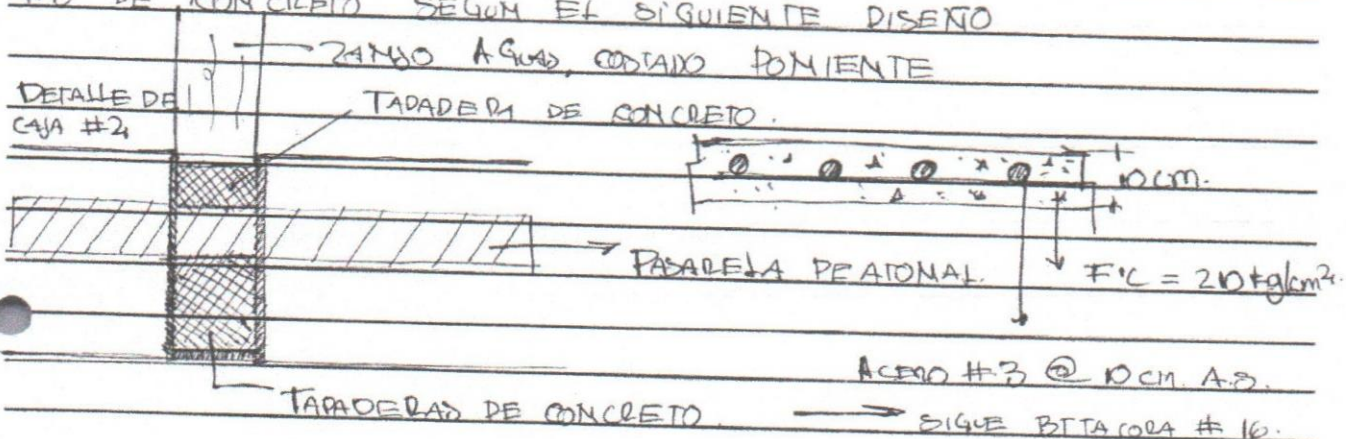 DE CONCRETO SEGUN EL SIGUIENTE DISEÑO
ZANJO AGUAS, COSTADO PONIENTE
DETALLE DE
CAJA #2
TAPADERA DE CONCRETO.
10 cm.
PASARELA PEATONAL.
F'C = 210 kg/cm².
ACERO #3 @ 10 cm. A.S.
TAPADERAS DE CONCRETO
SIGUE BITACORA # 16.